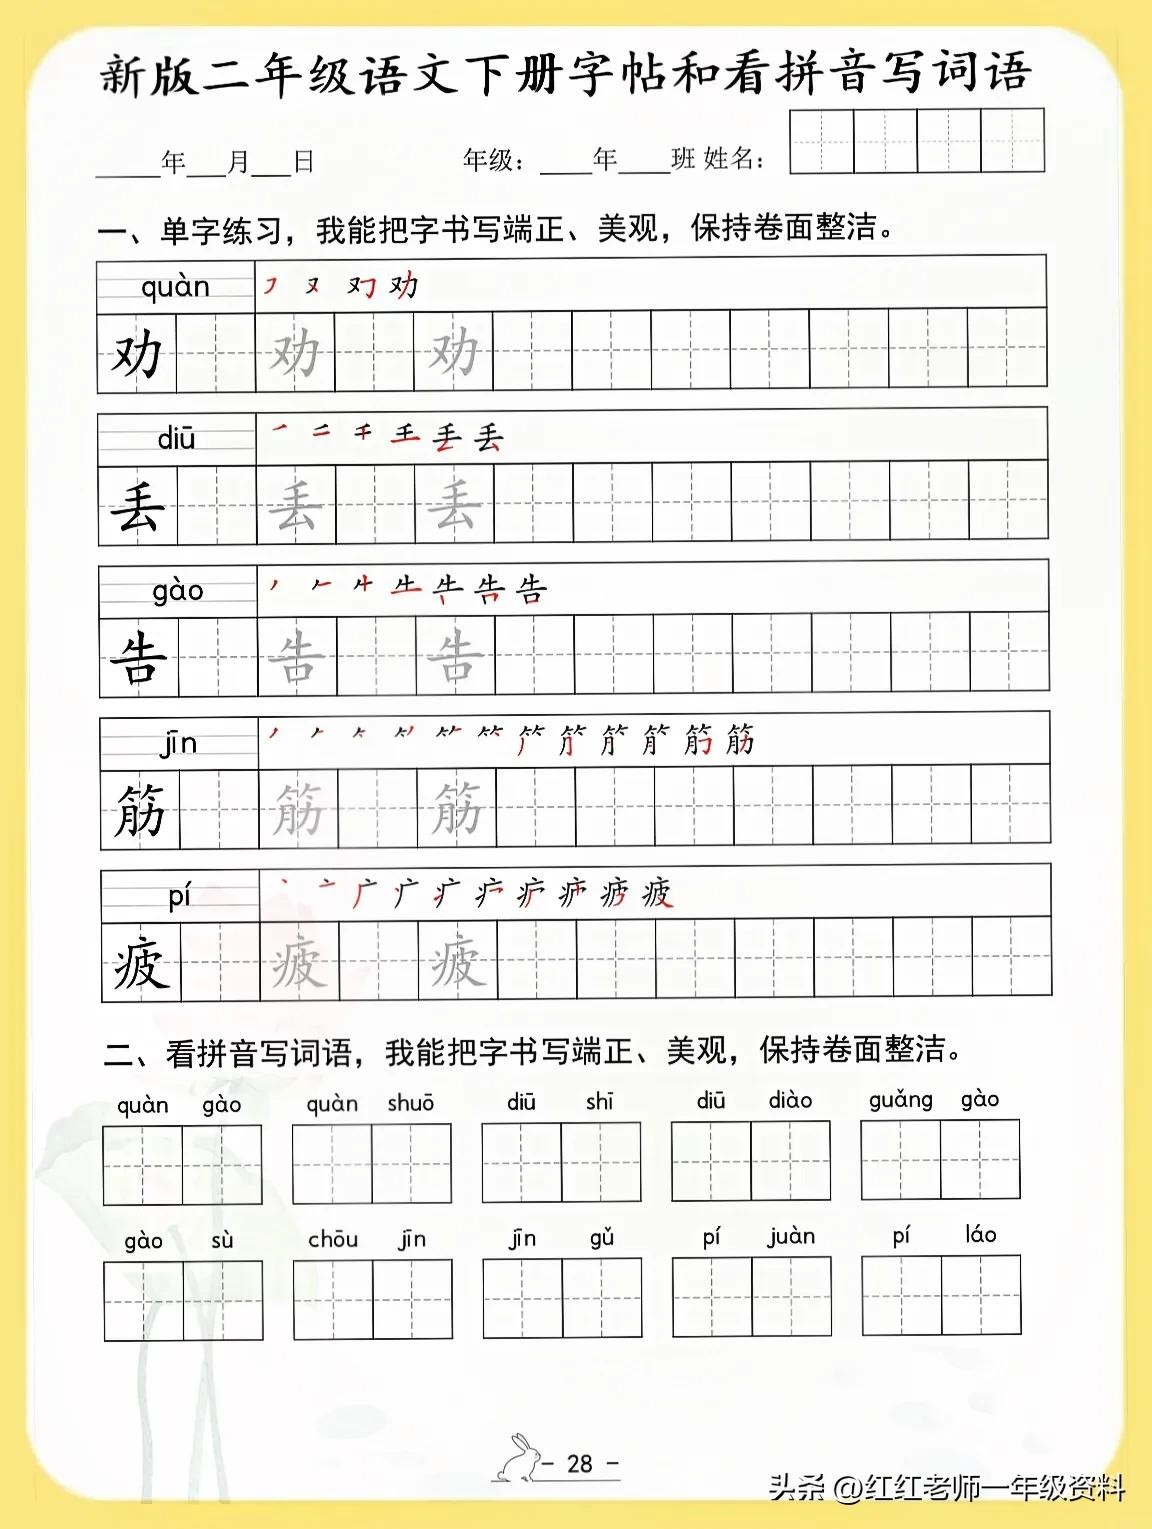 新版二年级语文下册字帖和看拼音写词语
_____年___月___日 年级：____年____班 姓名：
一、单字练习，我能把字书写端正、美观，保持卷面整洁。
quàn
劝 劝 劝
diū
丢 丢 丢
gào
告 告 告
jīn
筋 筋 筋
pí
疲 疲 疲
二、看拼音写词语，我能把字书写端正、美观，保持卷面整洁。
quàn gào quàn shuō diū shī diū diào guǎng gào
gào sù chōu jīn jīn gǔ pí juàn pí láo
- 28 -
头条 @红红老师一年级资料